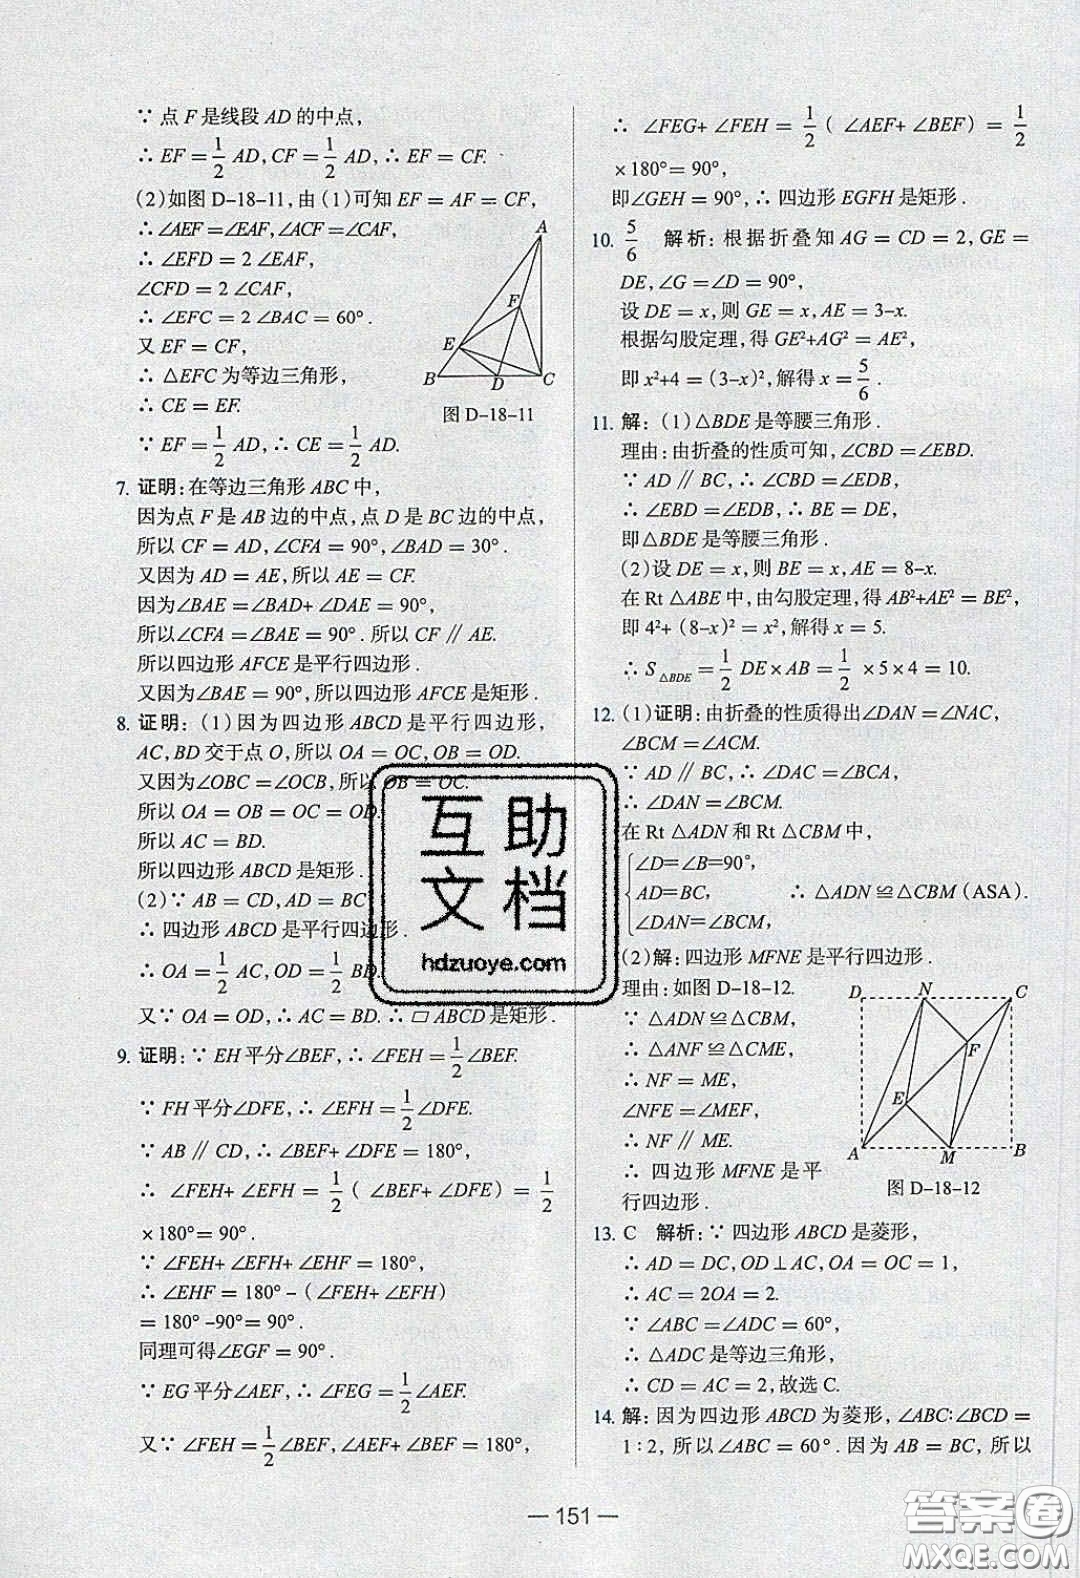 ∵ 点 F 是线段 AD 的中点，
∴ EF = 1/2 AD, CF = 1/2 AD, ∴ EF = CF.
(2)如图 D-18-11，由（1）可知 EF = AF = CF，
∴ ∠AEF = ∠EAF, ∠ACF = ∠CAF，
∴ ∠EFD = 2 ∠EAF，
∠CFD = 2 ∠CAF，
∴ ∠EFC = 2 ∠BAC = 60°.
又 EF = CF，
∴ △EFC 为等边三角形，
∴ CE = EF.
∵ EF = 1/2 AD, ∴ CE = 1/2 AD.
A
F
E
B
D
C
图 D-18-11
7. 证明：在等边三角形 ABC 中，
因为点 F 是 AB 边的中点，点 D 是 BC 边的中点，
所以 CF = AD, ∠CFA = 90°, ∠BAD = 30°.
又因为 AD = AE，所以 AE = CF.
因为∠BAE = ∠BAD+ ∠DAE = 90°，
所以∠CFA = ∠BAE = 90°. 所以 CF ∥ AE.
所以四边形 AFCE 是平行四边形.
又因为∠BAE = 90°，所以四边形 AFCE 是矩形.
8. 证明：（1）因为四边形 ABCD 是平行四边形，
AC, BD 交于点 O，所以 OA = OC, OB = OD.
又因为∠OBC = ∠OCB，所以 OB = OC.
所以 OA = OB = OC = OD.
所以 AC = BD.
所以四边形 ABCD 是矩形.
(2)∵ AB = CD, AD = BC
∴ 四边形 ABCD 是平行四边形.
∴ OA = 1/2 AC, OD = 1/2 BD.
又∵ OA = OD, ∴ AC = BD. ∴ □ ABCD 是矩形.
9. 证明：∵ EH 平分∠BEF, ∴ ∠FEH = 1/2 ∠BEF.
∵ FH 平分∠DFE, ∴ ∠EFH = 1/2 ∠DFE.
∵ AB ∥ CD, ∴ ∠BEF+ ∠DFE = 180°，
∴ ∠FEH+ ∠EFH = 1/2 ( ∠BEF+ ∠DFE) = 1/2
×180°= 90°.
∵ ∠FEH+ ∠EFH+ ∠EHF = 180°，
∴ ∠EHF = 180° - (∠FEH+ ∠EFH)
= 180° -90°= 90°.
同理可得∠EGF = 90°.
∵ EG 平分∠AEF, ∴ ∠FEG = 1/2 ∠AEF.
又∵ ∠FEH = 1/2 ∠BEF, ∠AEF+ ∠BEF = 180°，
∴ ∠FEG+ ∠FEH = 1/2 ( ∠AEF+ ∠BEF) = 1/2
×180°= 90°，
即∠GEH = 90°, ∴ 四边形 EGFH 是矩形.
10. 5/6 解析：根据折叠知 AG = CD = 2, GE =
DE, ∠G = ∠D = 90°，
设 DE = x，则 GE = x, AE = 3-x.
根据勾股定理，得 GE²+AG² = AE²，
即 x²+4 = (3-x)²，解得 x = 5/6.
11. 解：（1）△BDE 是等腰三角形.
理由：由折叠的性质可知，∠CBD = ∠EBD.
∵ AD ∥ BC, ∴ ∠CBD = ∠EDB，
∴ ∠EBD = ∠EDB, ∴ BE = DE，
即△BDE 是等腰三角形.
(2)设 DE = x，则 BE = x, AE = 8-x.
在 Rt △ABE 中，由勾股定理，得 AB²+AE² = BE²，
即 4²+ (8-x)² = x²，解得 x = 5.
∴ S△BDE = 1/2 DE×AB = 1/2 ×5×4 = 10.
12. (1)证明：由折叠的性质得出∠DAN = ∠NAC，
∠BCM = ∠ACM.
∵ AD ∥ BC, ∴ ∠DAC = ∠BCA，
∴ ∠DAN = ∠BCM.
在 Rt △ADN 和 Rt △CBM 中，
∠D=∠B=90°,
AD=BC, ∴ △ADN ≌ △CBM (ASA).
∠DAN=∠BCM,
(2)解：四边形 MFNE 是平行四边形.
理由：如图 D-18-12.
∵ △ADN ≌ △CBM，
∴ △ANF ≌ △CME，
∴ NF = ME，
∠NFE = ∠MEF，
∴ NF ∥ ME.
∴ 四边形 MFNE 是平
行四边形.
D
N
C
F
E
A
M
B
图 D-18-12
13. C 解析：∵ 四边形 ABCD 是菱形，
∴ AD = DC, OD⊥AC, OA = OC = 1，
∴ AC = 2OA = 2.
∵ ∠ABC = ∠ADC = 60°，
∴ △ADC 是等边三角形，
∴ CD = AC = 2，故选 C.
14. 解：因为四边形 ABCD 为菱形，∠ABC∶∠BCD =
1∶2，所以∠ABC = 60°. 因为 AB = BC，所以
互助
文档
hdzuoye.com
— 151 —
答案圈
MXQE.COM